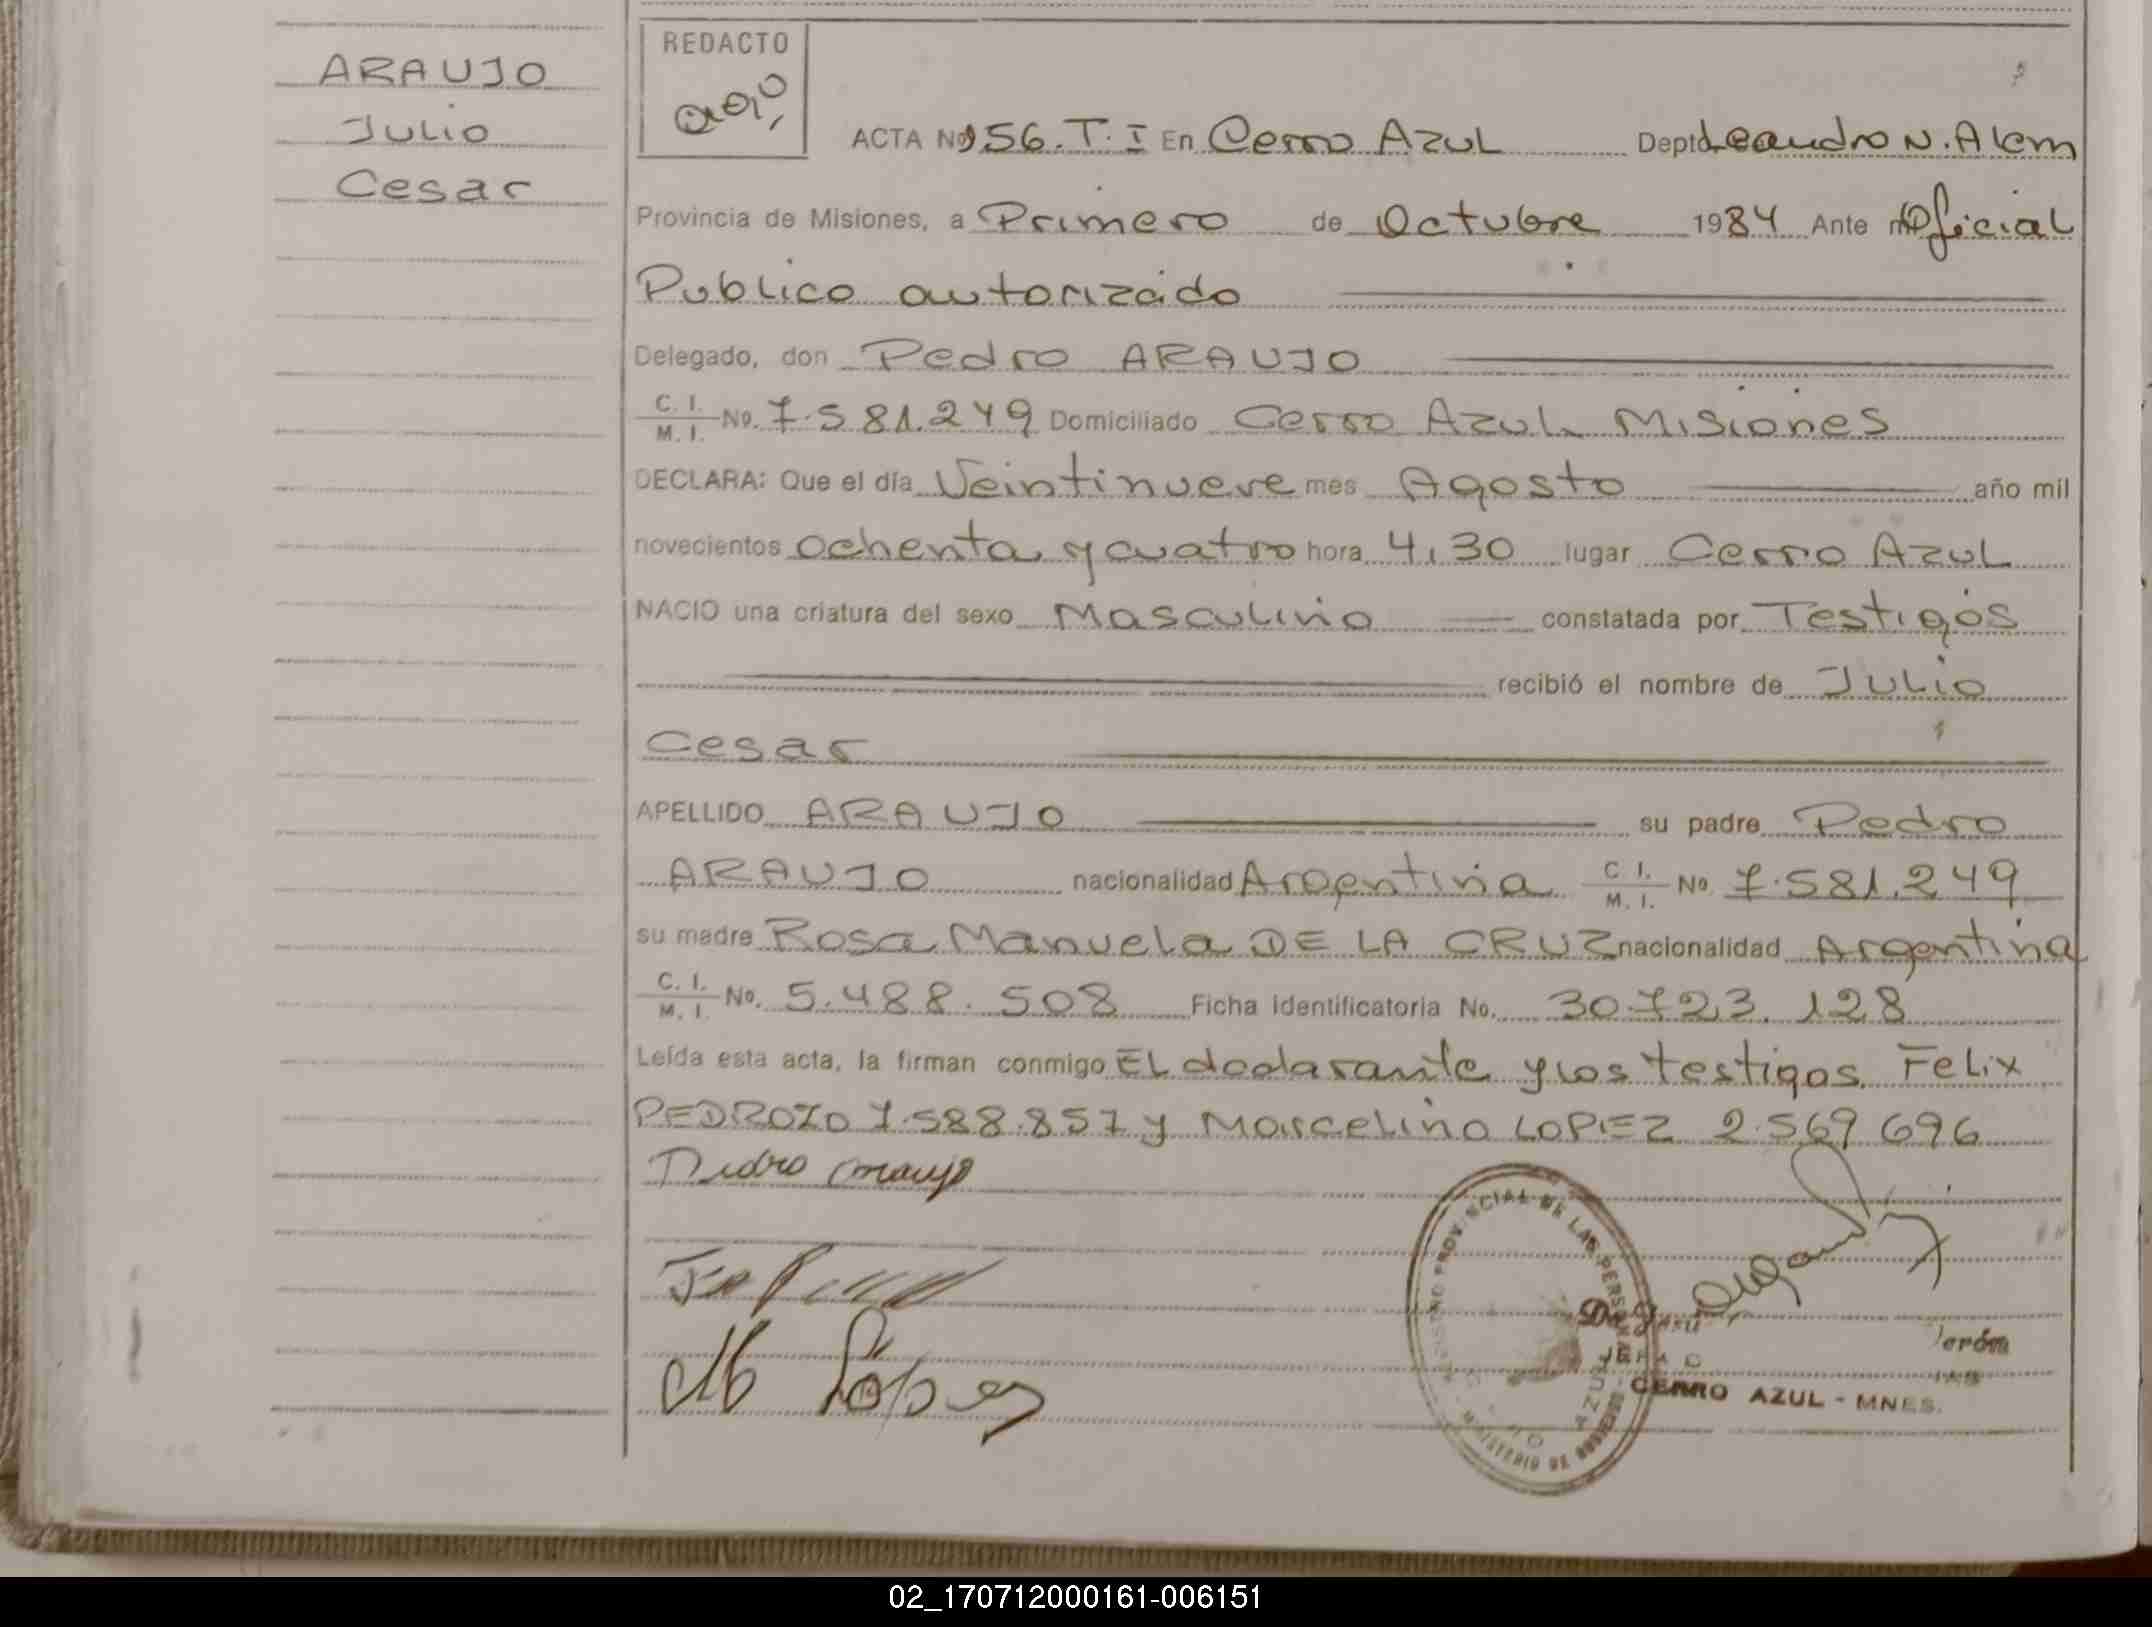 ARAUJO
Julio
Cesar
REDACTO
ACTA No 956. T. I En Cerro Azul Depto Leandro N. Alem
Provincia de Misiones, a Primero de Octubre 1984 Ante mi Oficial
Publico autorizado
Delegado, don Pedro ARAUJO
C. I. / M. I. No. 7.581.249 Domiciliado Cerro Azul Misiones
DECLARA: Que el día Veintinueve mes Agosto año mil
novecientos ochenta y cuatro hora 4,30 lugar Cerro Azul
NACIO una criatura del sexo Masculino constatada por Testigos
recibió el nombre de Julio
Cesar
APELLIDO ARAUJO su padre Pedro
ARAUJO nacionalidad Argentina C. I. / M. I. No 7.581.249
su madre Rosa Manuela DE LA CRUZ nacionalidad Argentina
C. I. / M. I. No. 5.488.508 Ficha identificatoria No. 30.723.128
Leída esta acta, la firman conmigo El declarante y los testigos Felix
PEDROZO 7.588.857 y Marcelino LOPEZ 2.569 696
Pedro Araujo
PROVINCIAL DE LAS PERSONAS
MINISTERIO DE GOBIERNO
CERRO AZUL - MNES.
M Lopez
02_170712000161-006151